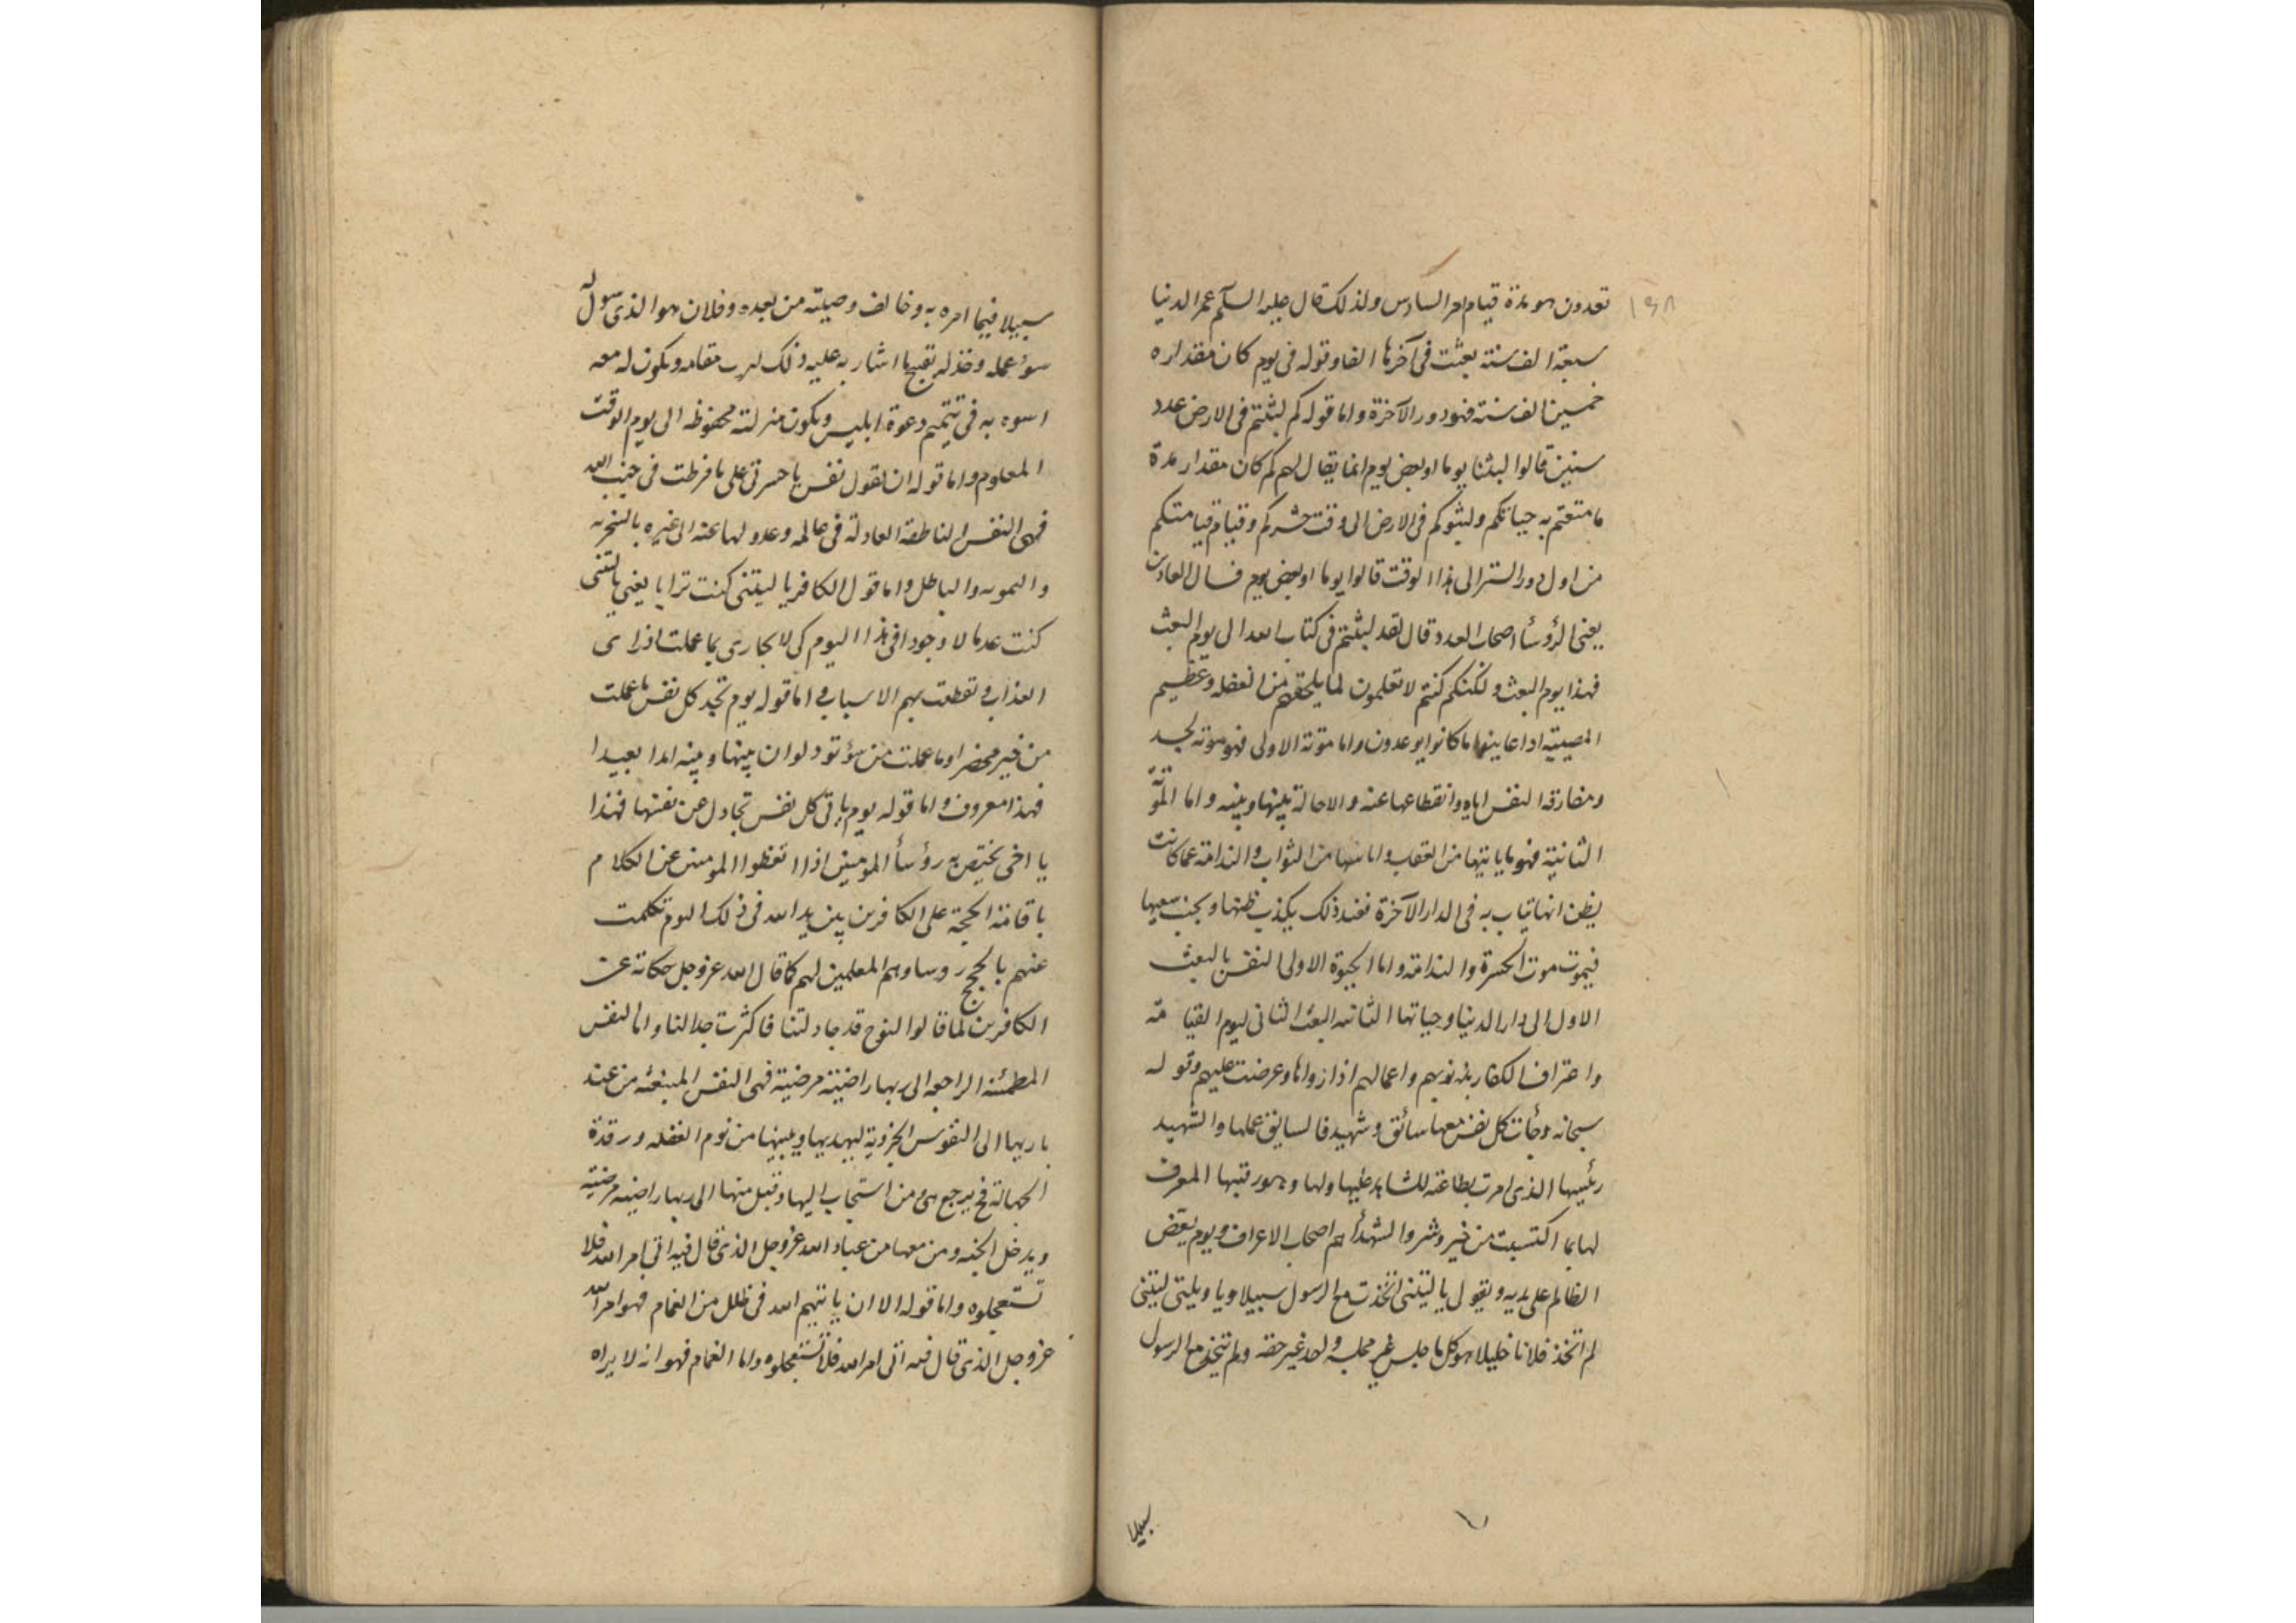 ١٩٨
تعدون هو مدة قيام امر السادس ولذلك قال عليه السلم عمر الدنيا
سبعة الف سنة بعثت فى آخرها الفا وقوله فى يوم كان مقداره
خمسين الف سنة فهو دور الآخرة واما قوله كم لبثتم فى الارض عدد
سنين قالوا لبثنا يوما او بعض يوم انما يقال لهم كم كان مقدار مدة
ما متعتم به حياتكم ولبثوكم فى الارض الى وقت حشركم وقيام قيامتكم
من اول دور الستر الى هذا الوقت قالوا يوما او بعض يوم فسال العادين
يعنى الرؤسأ اصحاب العدد وقال لقد لبثتم فى كتاب الله الى يوم البعث
فهذا يوم البعث ولكنكم كنتم لا تعلمون لما يلحقهم من الغفله وعظيم
المصيبة اذا عاينوا ما كانوا يوعدون واما موتة الاولى فهو موتة الجسد
ومفارقة النفس اياه وانقطاعها عنه والاحالة بينها وبينه واما الموتة
الثانية فهو ما ياتيها من العقاب واياسها من الثواب والندامة عما كانت
يظن انها تياب به فى الدار الآخرة فعند ذلك يكذب ظنها ويخب سعيها
فيموت موت الحسرة والندامة واما الحيوة الاولى النفس بالبعث
الاول الى دار الدنيا وحياتها الثانيه البعث الثانى ليوم القيامة
واعتراف الكفار بذنوبهم واعمالهم اذا زواها وعرضت عليهم وقوله
سبحانه وجأت كل نفس معها سائق وشهيد فالسايق عملها والشهيد
رئيسها الذى امرت بطاعته للشاهد عليها ولها وهو رقيبها المعرف
لها بما اكتسبت من خير وشر والشهدأ هم اصحاب الاعراف ويوم يعض
الظالم على يديه ويقول يا ليتنى اتخذت مع الرسول سبيلا ويا ويلتى ليتنى
لم اتخذ فلانا خليلا هو كل ما جلس غير مجلسه واخذ غير حقه ولم يتخذ مع الرسول
سبيلا
سبيلا فيما امره به وخالف وصيته من بعده وفلان هو الذى سول له
سوء عمله وخذله بقبيح ما اشار به عليه وذلك لهرب مقامه ويكون له معه
اسوه به فى تتميم دعوة ابليس ويكون منزلته محفوظه الى يوم الوقت
المعلوم واما قوله ان تقول نفس يا حسرتى على ما فرطت فى جنب الله
فهى النفس الناطقة العادلة فى عالمه وعدولها عنه الى غيره بالسخريه
والتمويه والباطل واما قول الكافر يا ليتنى كنت ترابا يعنى يا ليتنى
كنت عدما لا وجود فى هذا اليوم كى لا يجارى بما عملت اذا راى
العذاب وتقطعت بهم الاسباب واما قوله يوم تجد كل نفس ما عملت
من خير محضرا وما عملت من سؤ تود لو ان بينها وبينه امدا بعيدا
فهذا معروف واما قوله يوم ياتى كل نفس تجادل عن نفسها فهذا
يا اخى يختص به رؤسأ المومنين اذا اتعظوا المومنين عن الكلام
باقامة الحجة على الكافرين بين يد الله فى ذلك اليوم تكلمت
عنهم بالحجج روساوهم المعلمين لهم كما قال الله عز وجل حكاية عن
الكافرين لما قالوا النوح قد جادلتنا فاكثرت جدالنا واما النفس
المطمئنه الراجعه الى ربها راضية مرضية فهى النفس المنبعثه من عند
باريها الى النفوس الجزوية ليهديها وينبهها من نوم الغفله ورقدة
الجهالة فح يرجع هى ومن استجاب اليها وقبل منها الى ربها راضيه مرضيه
ويدخل الجنه ومن معها من عباد الله عز وجل الذى قال فيه اتى امر الله فلا
تستعجلوه واما قوله الا ان ياتيهم الله فى ظلل من الغمام فهو امر الله
عز وجل الذى قال فيه اتى امر الله فلا تستعجلوه واما الغمام فهو انه لا يراه